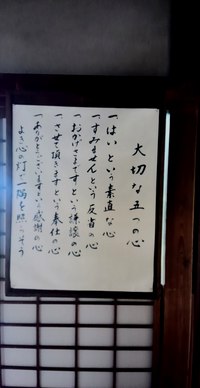 大切な五つの心
一「はい」という素直な心
一「すみません」という反省の心
一「おかげさまです」という謙譲の心
一「させて頂きます」という奉仕の心
一「ありがとうございます」という感謝の心
よき心の灯で一隅を照らそう